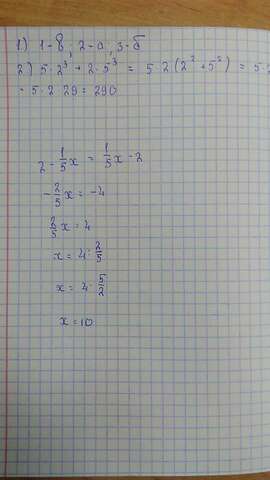 1) 1-в; 2-а, 3-б
2) 5·2³ + 2·5³ = 5·2(2²+5²) = 5·2
= 5·2·29 = 290
2 - 1/5 x = 1/5 x - 2
-2/5 x = -4
2/5 x = 4
x = 4 : 2/5
x = 4 · 5/2
x = 10